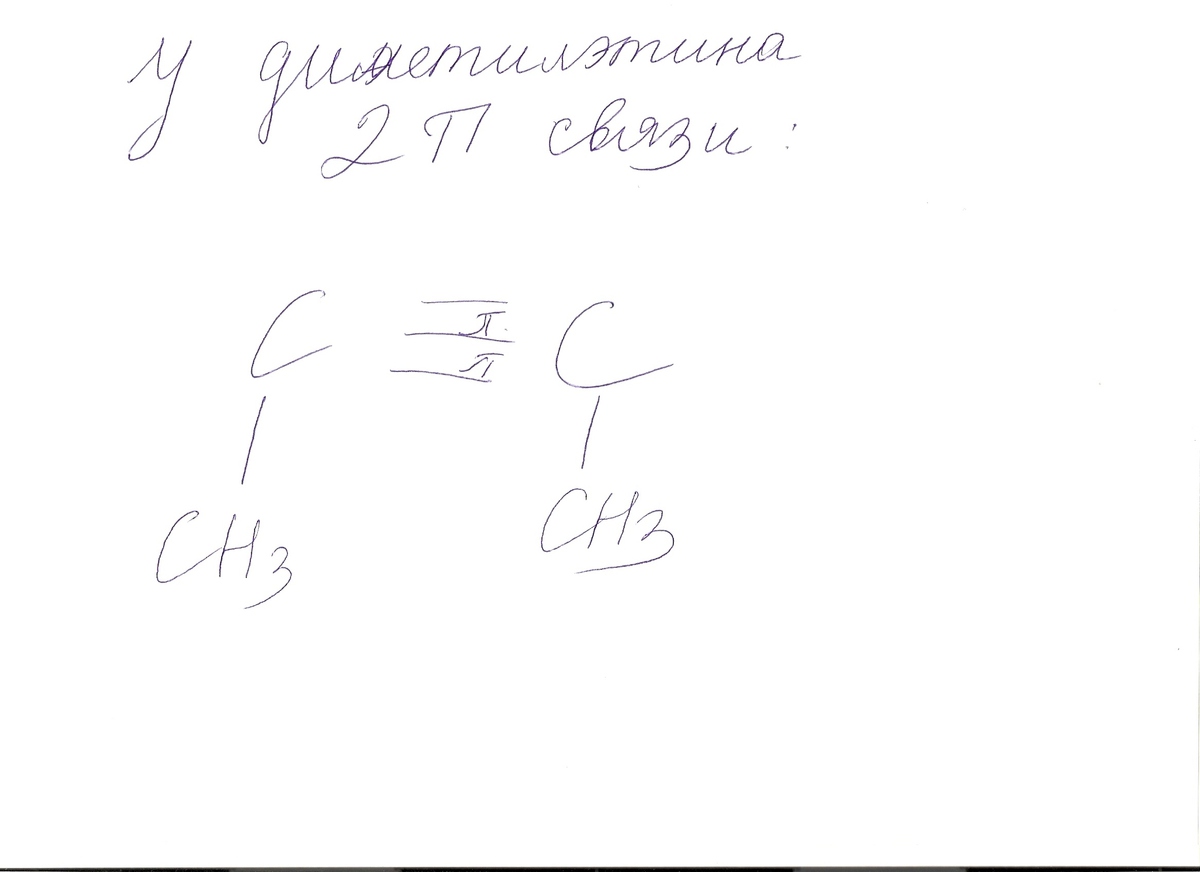 У диметилэтина
2 П связи:
C ≡ C
π
π
CH3 CH3